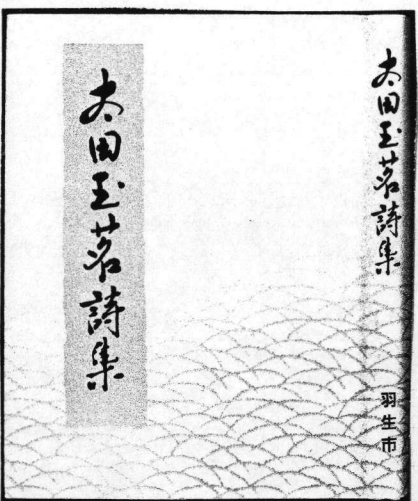 太田玉茗詩集
太田玉茗詩集
羽生市